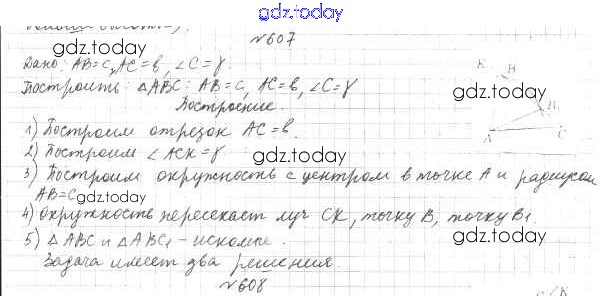 gdz.today
№607
gdz.today
Дано: AB=c, AC=b, ∠C=γ.
Построить: △ABC: AB=c, AC=b, ∠C=γ
gdz.today
Построение.
K
H
B₁
A
C
1) Построим отрезок AC=b.
2) Построим ∠ACK=γ
gdz.today
3) Построим окружность с центром в точке A и радиусом
AB=c
gdz.today
4) Окружность пересекает луч CK, точку B, точку B₁.
5) △ABC и △ABC₁ - искомые.
gdz.today
Задача имеет два решения.
№608